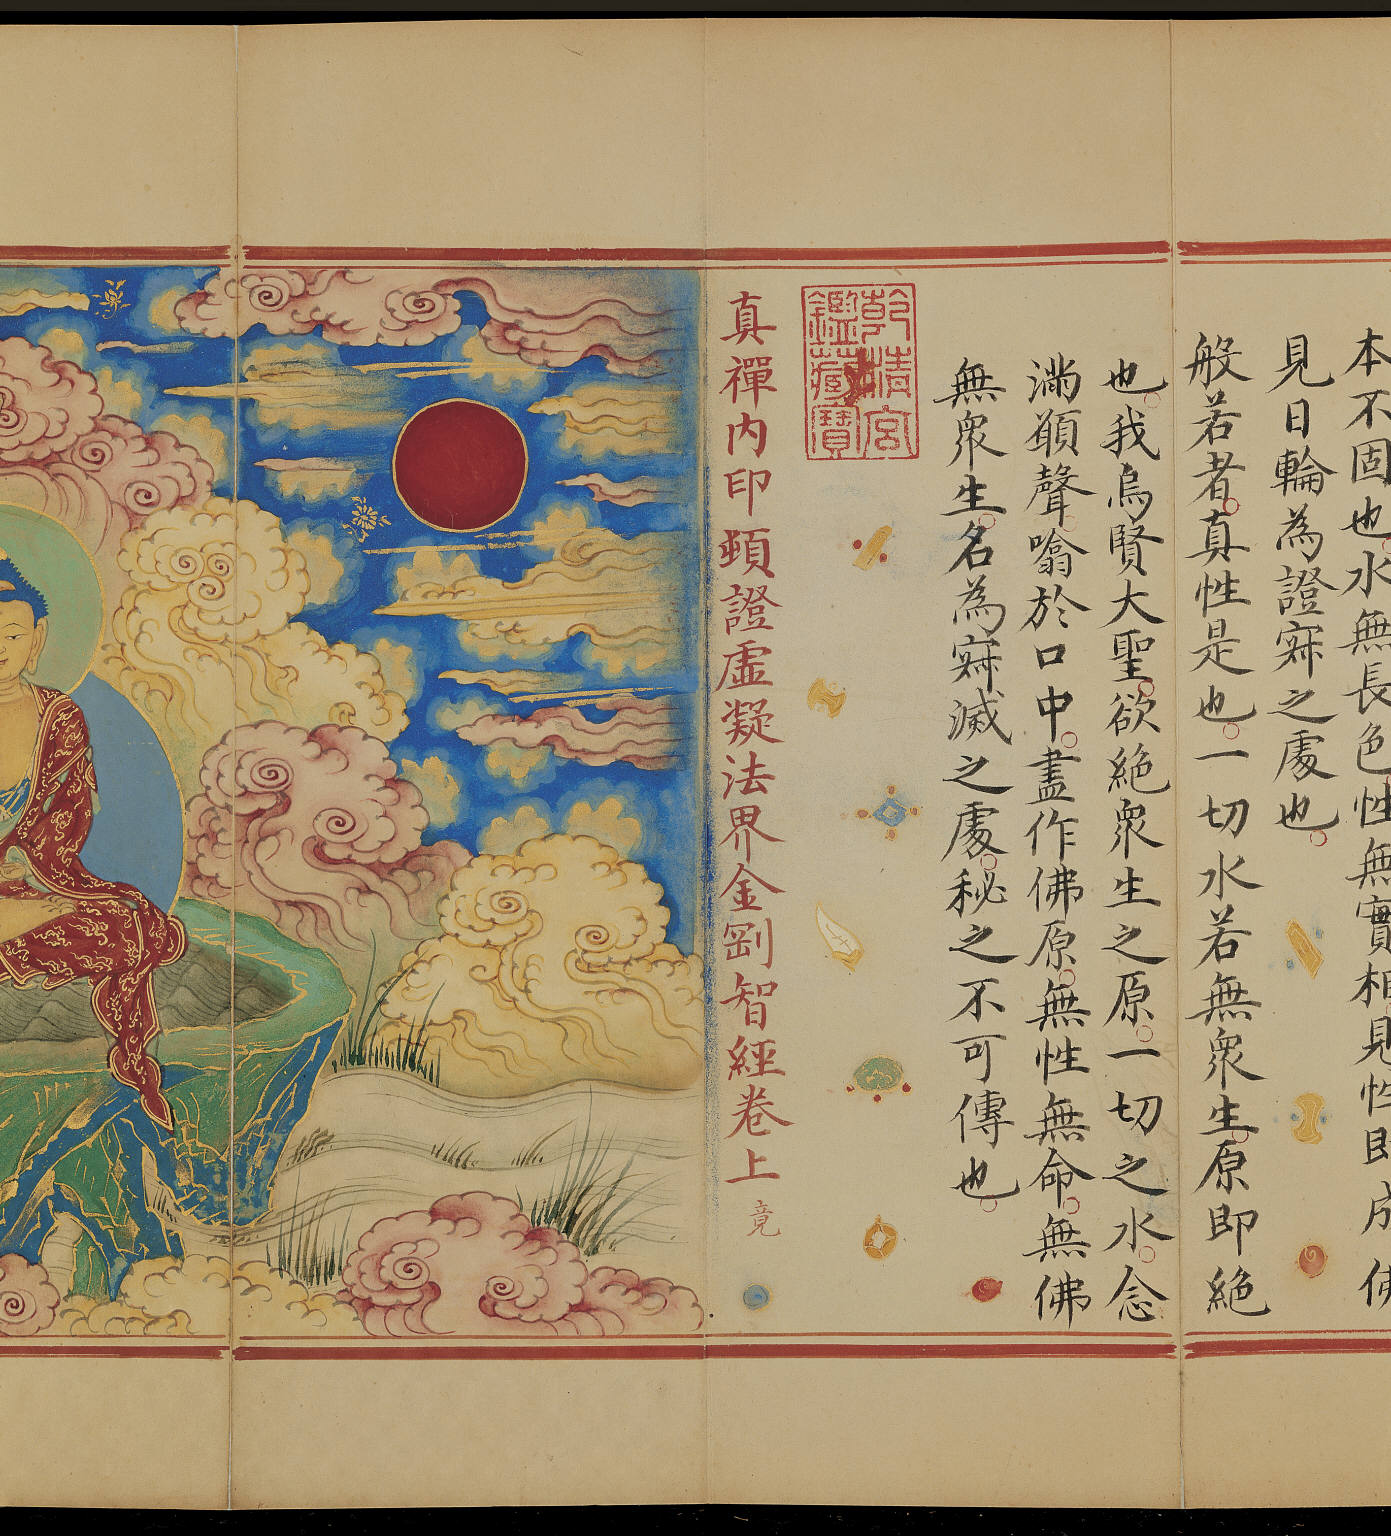 本不固也水無長色性無實相見性即成佛
見日輪為證寂之處也
般若者真性是也一切水若無衆生原即絕
也我烏賢大聖欲絕衆生之原一切之水念
滿頋聲噏於口中盡作佛原無性無命無佛
無衆生名為寂滅之處秘之不可傳也
乾清宮
鑑藏寶
真禪内印頓證虛凝法界金剛智經卷上 竟